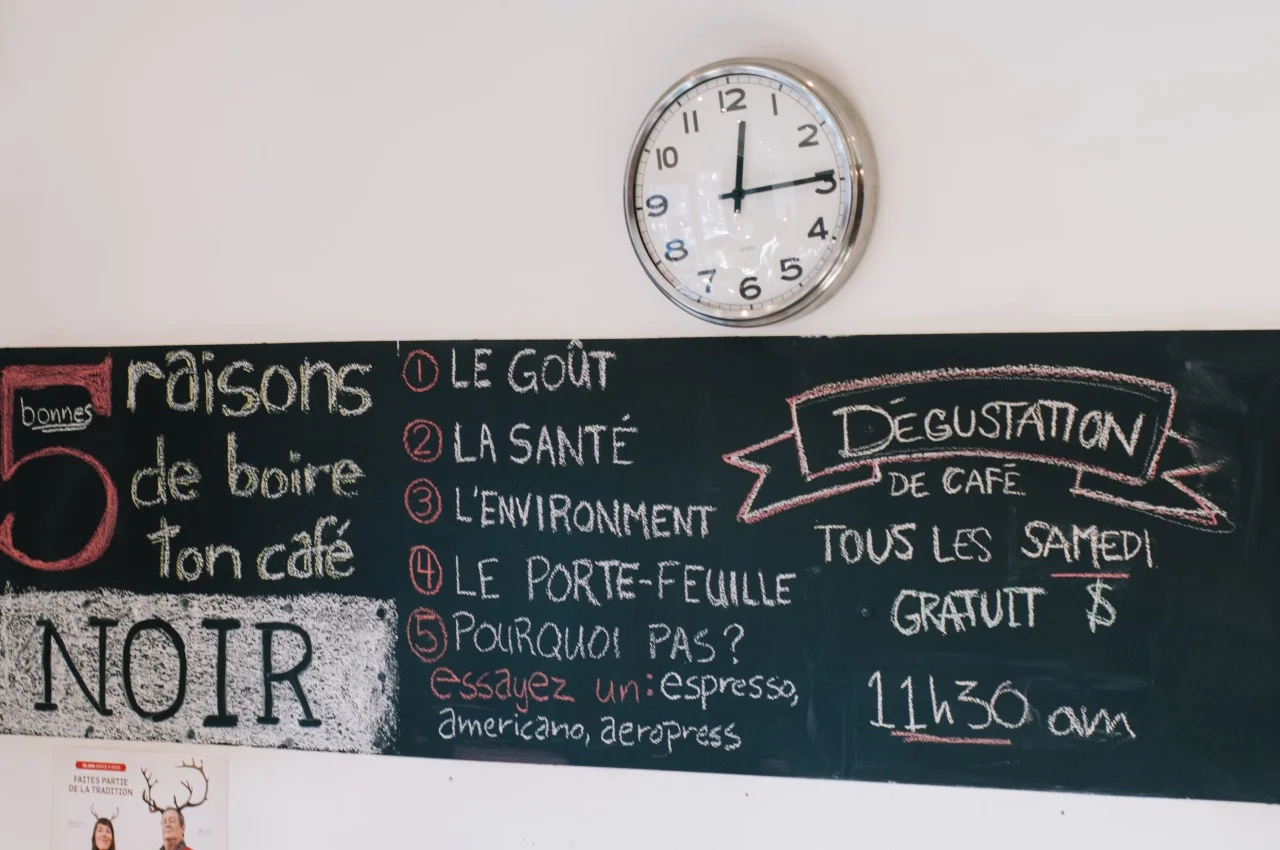 12
1
2
3
4
5
6
7
8
9
10
11
5 bonnes
raisons
de boire
ton café
NOIR
① LE GOÛT
② LA SANTÉ
③ L'ENVIRONMENT
④ LE PORTE-FEUILLE
⑤ POURQUOI PAS?
essayez un: espresso,
americano, aeropress
DÉGUSTATION
DE CAFÉ
TOUS LES SAMEDI
GRATUIT $
11h30 am
FAITES PARTIE
DE LA TRADITION